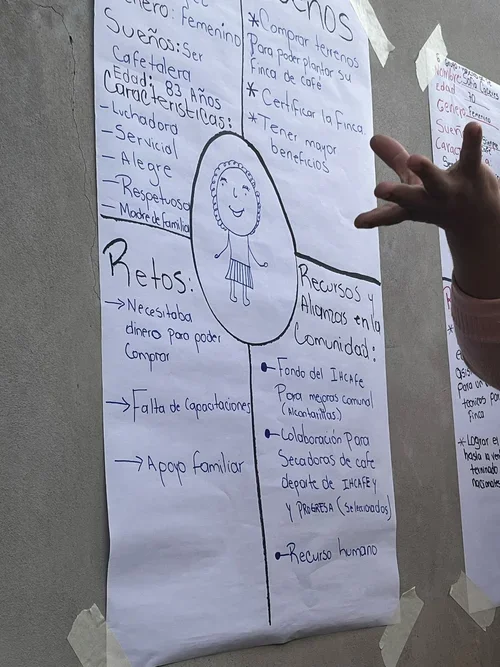 Género: Femenino
Sueños: Ser
Cafetalera
Edad: 83 Años
Características:
- Luchadora
- Servicial
- Alegre
- Respetuosa
- Madre de familia
Sueños
* Comprar terrenos
Para poder plantar su
Finca de café
* Certificar la Finca.
* Tener mayor
beneficios
Retos:
→ Necesitaba
dinero para poder
Comprar
→ Falta de Capacitaciones
→ Apoyo familiar
Recursos y
Alianzas en la
Comunidad:
Fondo del IHCAFE
Para mejoras comunal
(Alcantarillas)
Colaboración Para
Secadoras de cafe
departe de IHCAFE y
y PROGRESA (Seleccionados)
Recurso humano
Nombre: Sofia
Edad 70
Genero: Femenino
Sueñ
Carac
* Lograr el
hasta la ven
terminado
nacionales